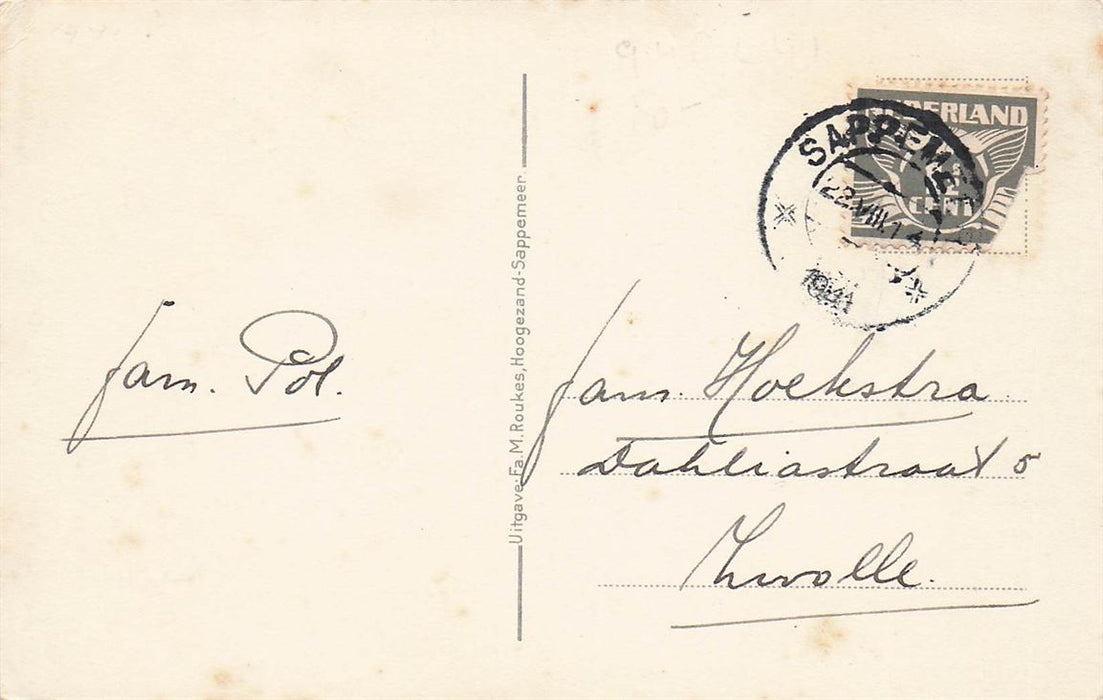 NEDERLAND
CENT
SAPPEMEER
22.VIII.1
1941
Fam. Pol.
Uitgave: Fa. M. Roukes, Hoogezand-Sappemeer.
Fam. Hoekstra
Dahliastraat 5
Zwolle.